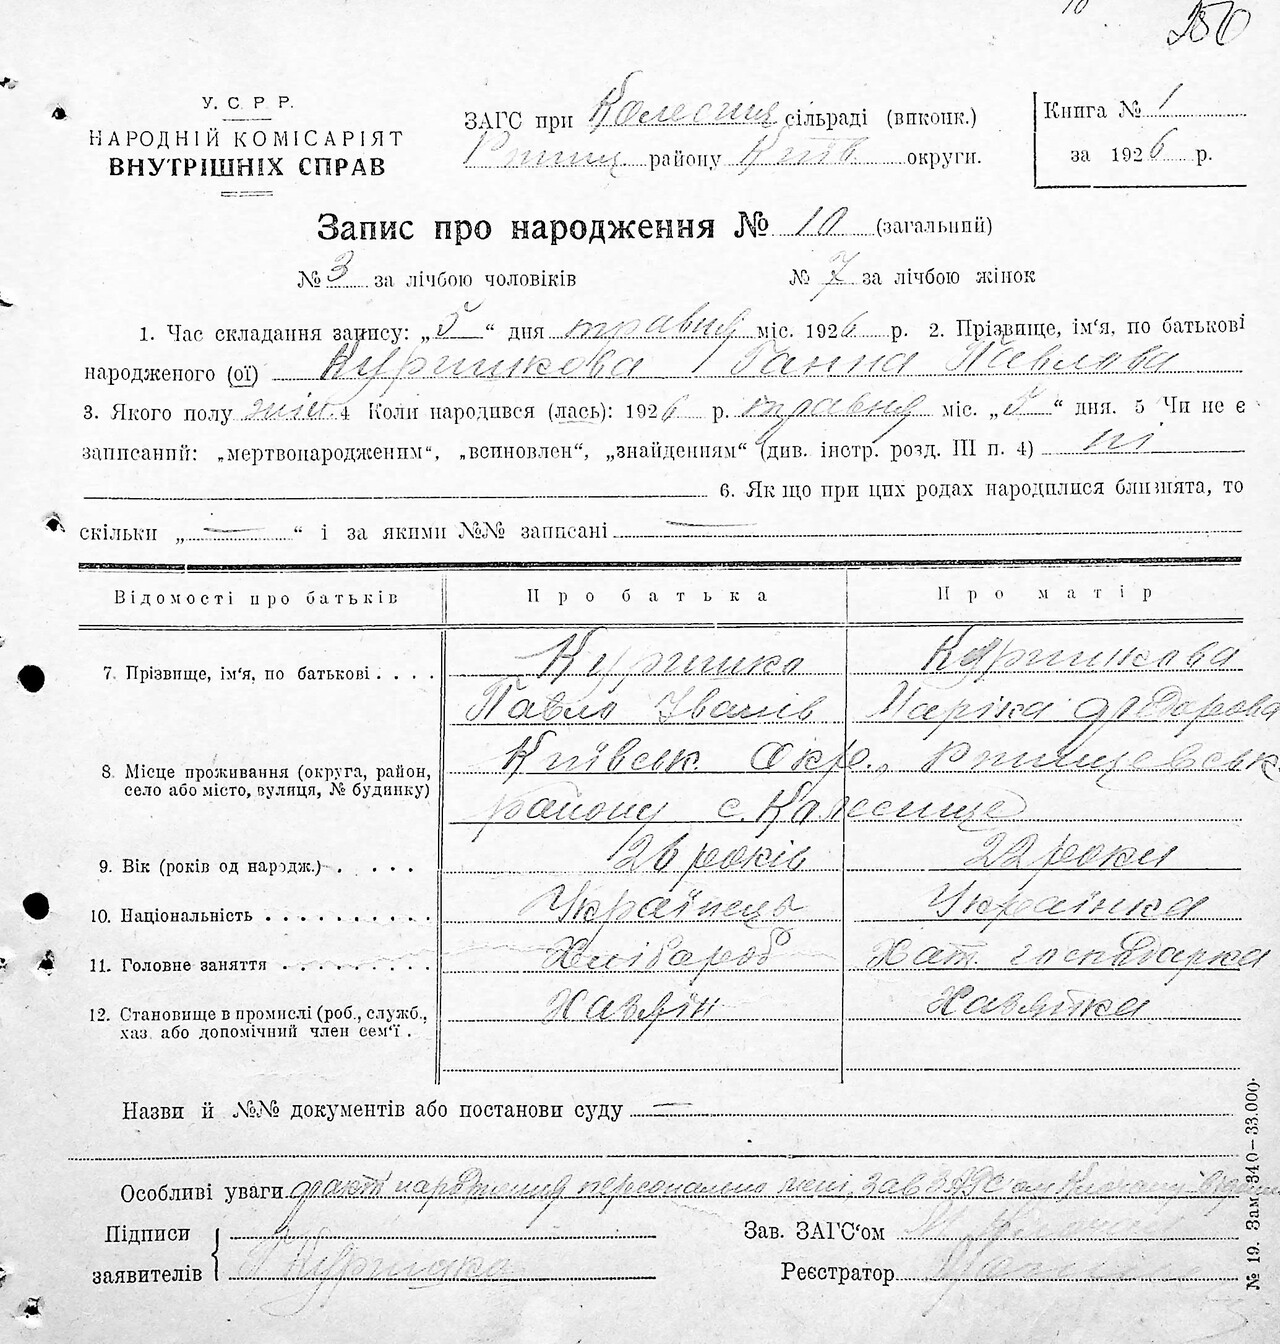 У. С. Р. Р.
НАРОДНІЙ КОМІСАРІЯТ
ВНУТРІШНІХ СПРАВ
ЗАГС при сільраді (виконк.)
району Київ округи.
Книга № 1
за 1926 р.
Запис про народження № 10 (загальний)
№ 3 за лічбою чоловіків № 7 за лічбою жінок
1. Час складання запису: „5“ дня травня міс. 1926 р. 2. Прізвище, ім'я, по батькові
народженого (ої) Куришкова Ганна Павлова
3. Якого полу жін. 4 Коли народився (лась): 1926 р. травня міс. „5“ дня. 5 Чи не є
записаний: „мертвонародженим“, „всиновлен“, „знайденням“ (див. інстр. розд. III п. 4) ні
6. Як що при цих родах народилися близнята, то
скільки „—“ і за якими №№ записані —
Відомості про батьків Про батька Про матір
7. Прізвище, ім'я, по батькові . . . . Куришко Куришкова
Павло Іванів Маріка Федорова
8. Місце проживання (округа, район, село або місто, вулиця, № будинку) Київськ. Окр., Ртищевськ.
району с.
9. Вік (років од народж.) . . . . . 26 років 22 роки
10. Національність . . . . . . . . . . Українець Українка
11. Головне заняття . . . . . . . . . Хлібороб Хат. господарка
12. Становище в промислі (роб., служб., хаз. або допомічний член сем'ї . Хазяїн Хазяйка
Назви й №№ документів або постанови суду —
Особливі уваги факт народження персонально мені, зав ЗАГС'ом
Підписи
заявителів Куришко
Зав. ЗАГС'ом
Реєстратор
№ 19. Зам. 340–33.000.